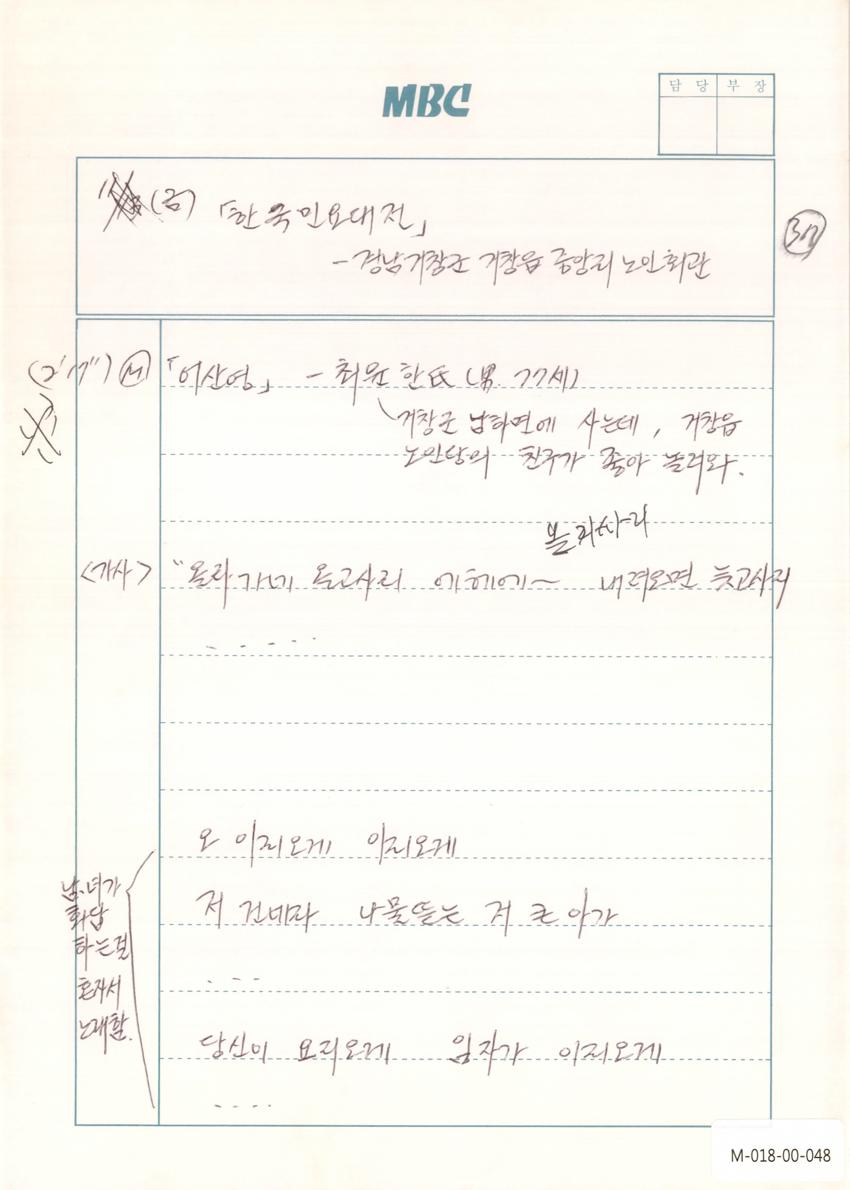 MBC
담 당 부 장
(금) 「한국민요대전」
- 경남거창군 거창읍 중앙리 노인회관
(2'17") Ⓜ 「어산영」 - 최원한氏 (男. 77세)
거창군 남하면에 사는데, 거창읍
노인당의 친구가 좋아 놀러와.
<가사> "올라가네 올고사리 에헤에~ 내려오면 늦고사리
. - . - .
오 이리오게 이리오게
저 건네라 나물뜯는 저 큰아가
. - -
당신이 요리오게 임자가 이리오게
. - - .
남.녀가
화답
하는걸
혼자서
노래함.
M-018-00-048